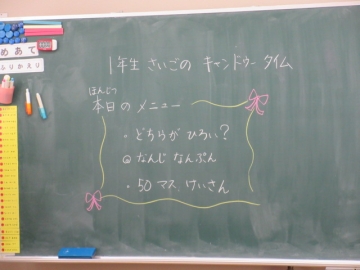 めあて
ふりかえり
1年生 さいごの キャンドゥー タイム
ほんじつ
本日の メニュー
・どちらが ひろい?
◎なんじ なんぷん
・50マス けいさん